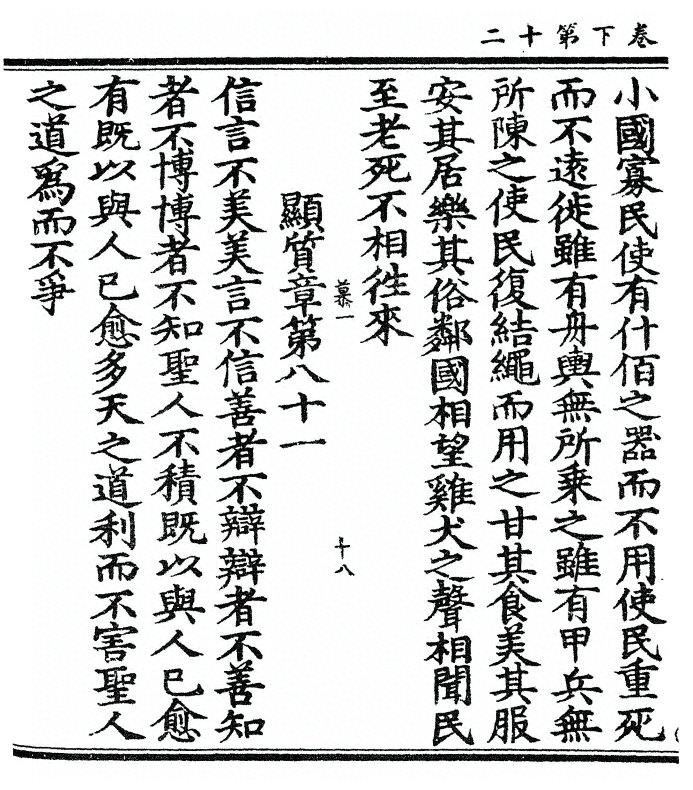 卷下第十二
小國寡民使有什佰之器而不用使民重死
而不遠徙雖有舟輿無所乘之雖有甲兵無
所陳之使民復結繩而用之甘其食美其服
安其居樂其俗鄰國相望雞犬之聲相聞民
至老死不相徃來
慕一
十八
顯質章第八十一
信言不美美言不信善者不辯辯者不善知
者不博博者不知聖人不積既以與人已愈
有既以與人已愈多天之道利而不害聖人
之道爲而不爭